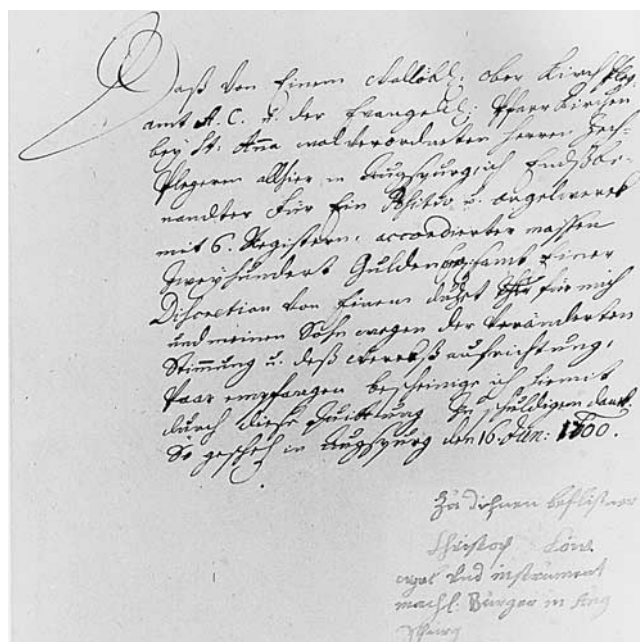 Daß von Einem Wollöbl: ober Kirch Pfleg
amt A. C. u. der Evangel: Pfarr Kirchen
bey St: Anna wolverordneten Herren Zech-
Pflegern allhier in Augspurg, ich Endßbe-
nandter Für Ein Positiv u. orgelwerck
mit 6. Registern, accordierter massen
Zweyhundert Gulden, sambt Einer
Discretion von Einem duget für mich
und meinen Sohn wegen der veränderten
Stimmung u. deß wercks aufrichtung,
Paar empfangen bescheinige ich hiemit
durch diese Quittung Zu schuldigem danck.
So gescheh in Augspurg den 16. Jun: 1700.
Zu dihnen beflißner
Christoph Löw
orgel und instrument
mach: Burger in Aug
spurg